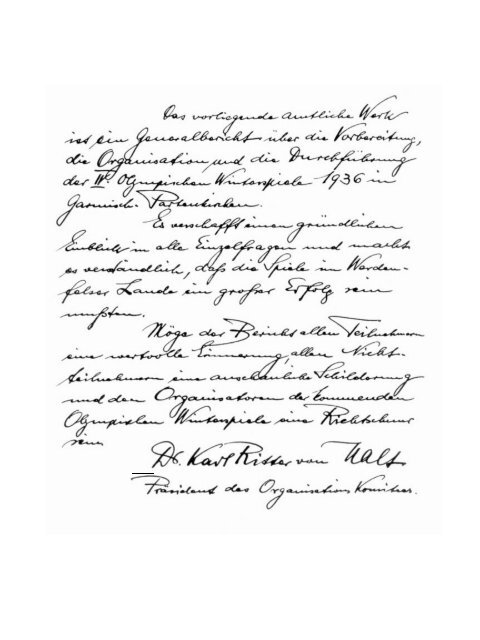 Das vorliegende amtliche Werk
ist ein Generalbericht über die Vorbereitung,
die Organisation und die Durchführung
der IV. Olympischen Winterspiele 1936 in
Garmisch-Partenkirchen.
Es verschafft einen gründlichen
Einblick in alle Einzelfragen und macht
es verständlich, daß die Spiele im Werden-
felser Lande ein großer Erfolg sein
mußten.
Möge der Bericht allen Teilnehmern
eine wertvolle Erinnerung, allen Nicht-
teilnehmern eine anschauliche Schilderung
und den Organisatoren der kommenden
Olympischen Winterspiele eine Richtschnur
sein.
Dr. Karl Ritter von Halt
Präsident des Organisations Komitees.